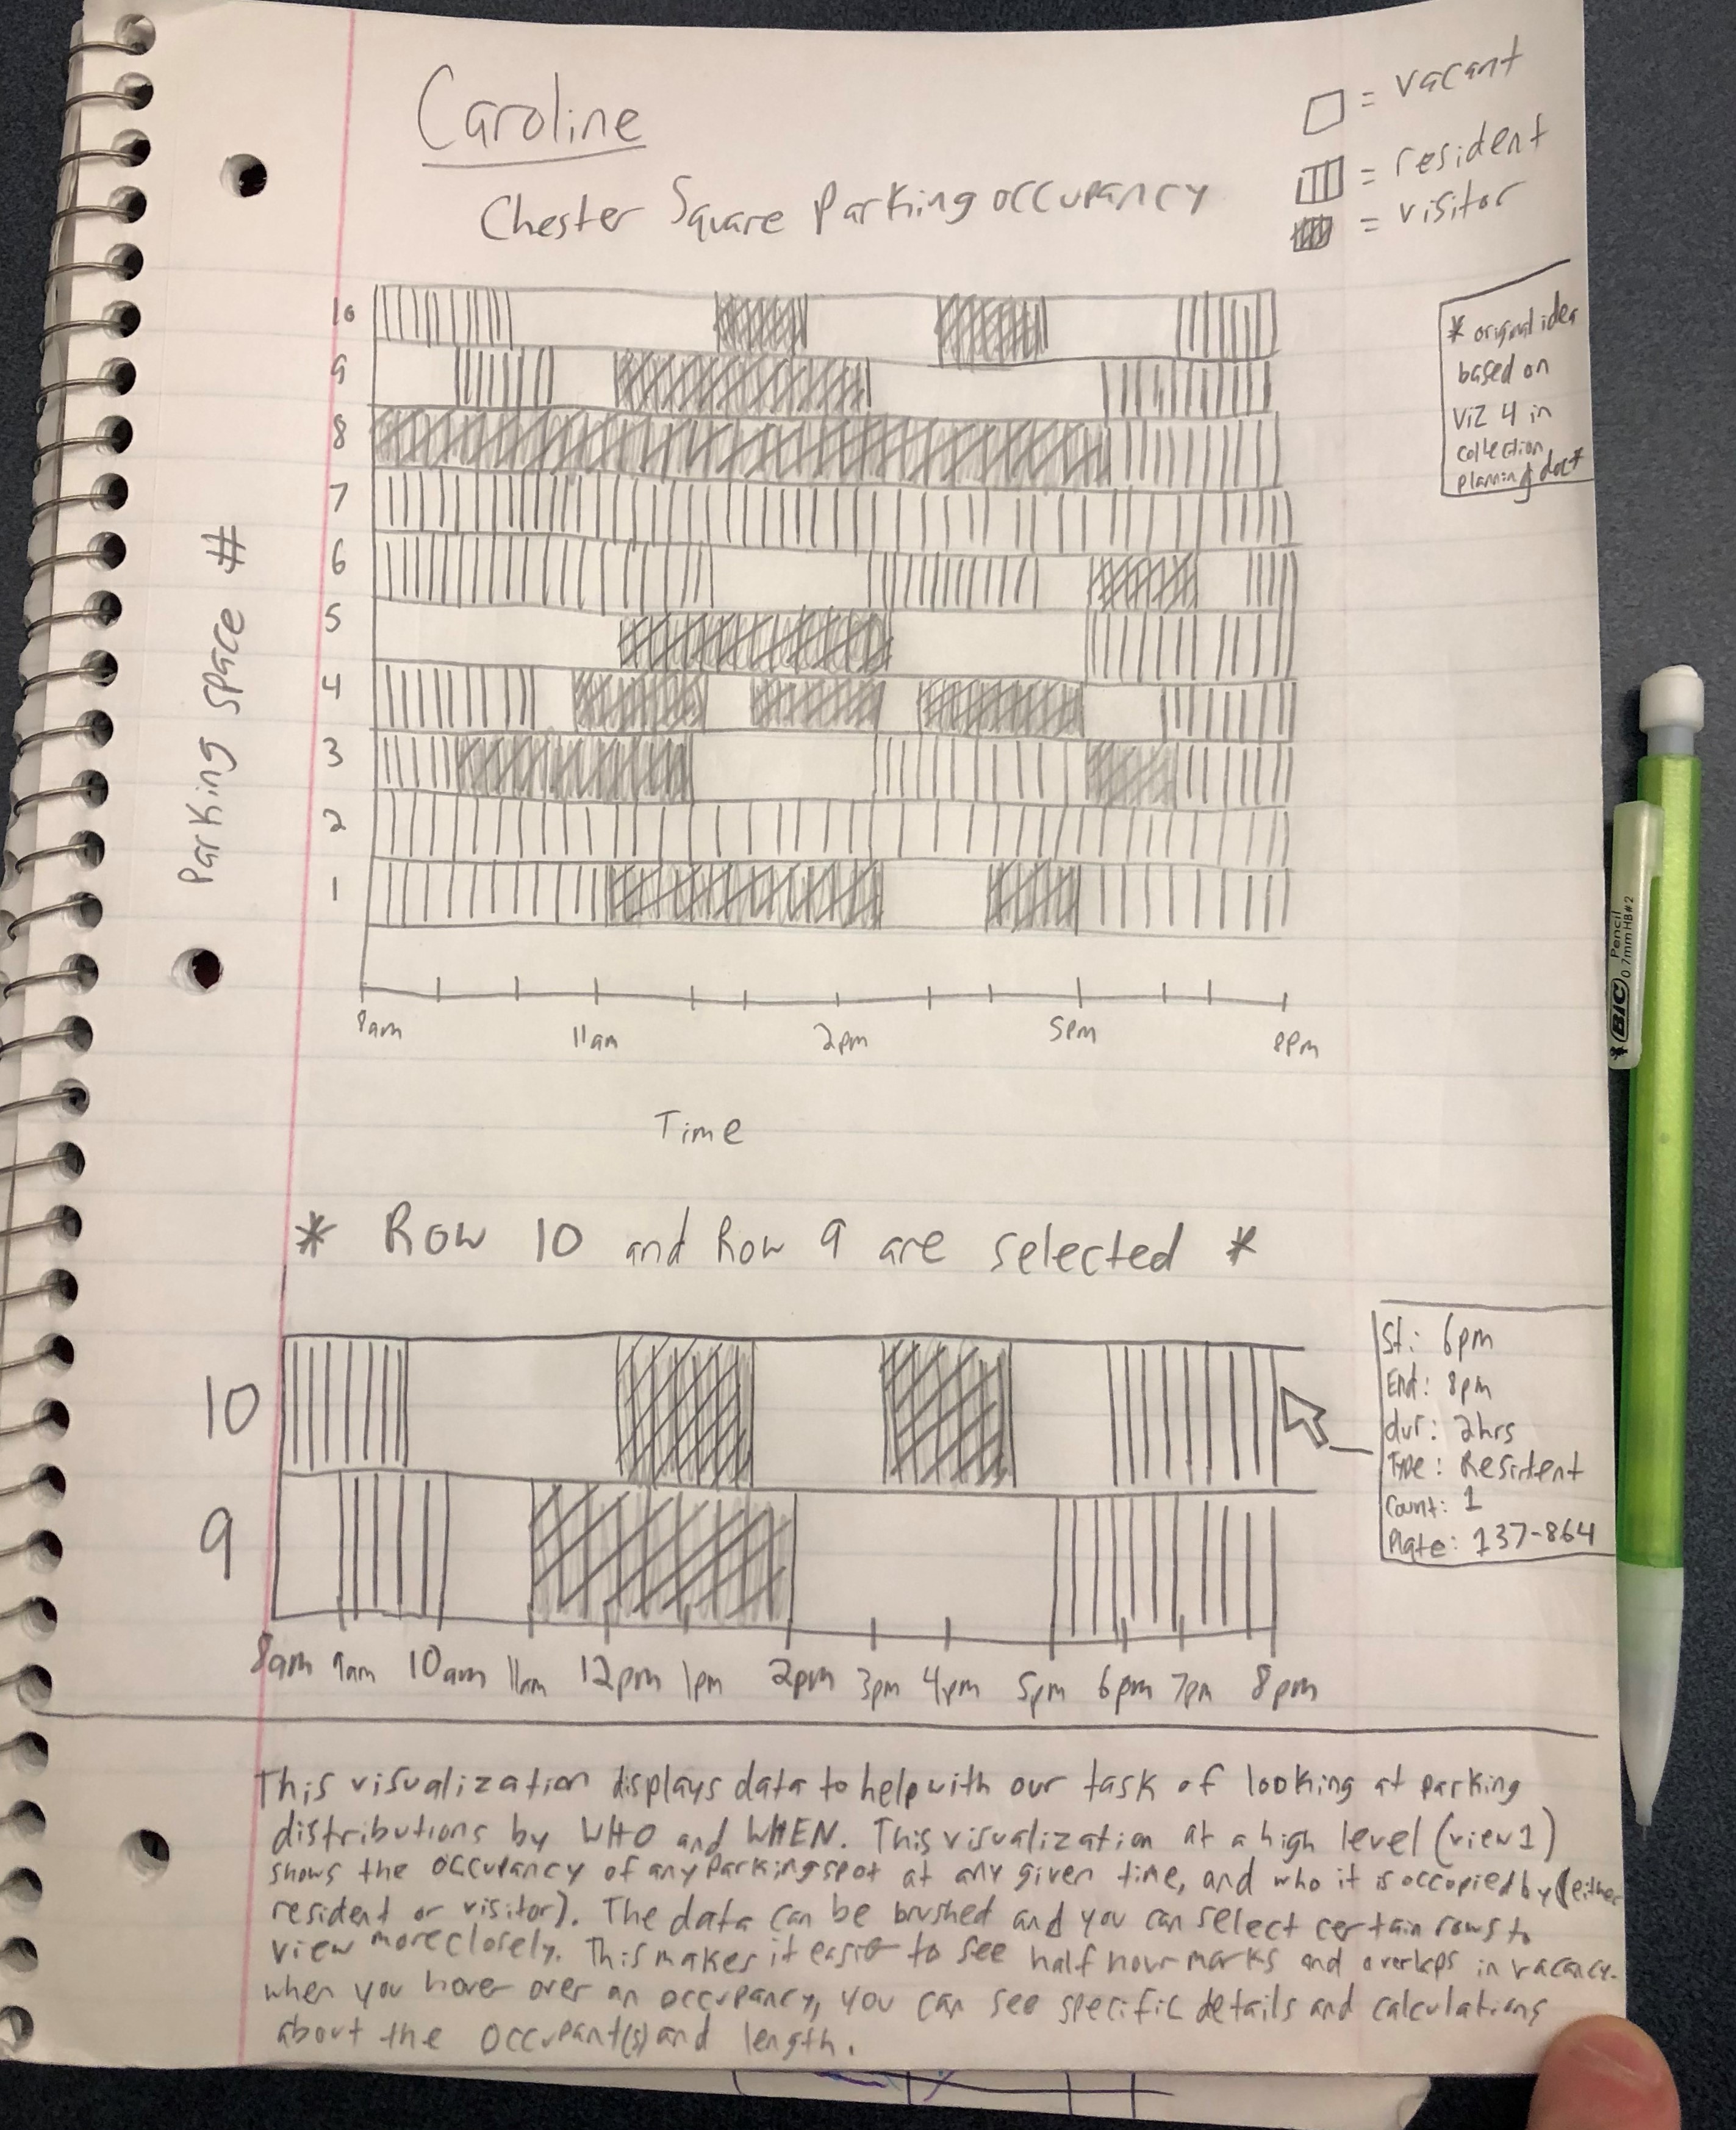 Caroline
Chester Square Parking occupancy
= vacant
= resident
= visitor
* original idea
based on
Viz 4 in
collection
planning doc*
Parking Space #
10
9
8
7
6
5
4
3
2
1
8am 11am 2pm 5pm 8pm
Time
* Row 10 and Row 9 are selected *
10
9
St: 6pm
End: 8pm
dur: 2hrs
Type: Resident
Count: 1
Plate: 137-864
8am 9am 10am 11am 12pm 1pm 2pm 3pm 4pm 5pm 6pm 7pm 8pm
This visualization displays data to help with our task of looking at parking
distributions by WHO and WHEN. This visualization at a high level (view 1)
shows the occupancy of any parking spot at any given time, and who it is occopied by (either
resident or visitor). The data can be brushed and you can select certain rows to
view more closely. This makes it easier to see half hour marks and overlaps in vacancy.
when you hover over an occupancy, you can see specific details and calculations
about the occupant(s) and length.
BIC Pencil
0.7mm HB#2